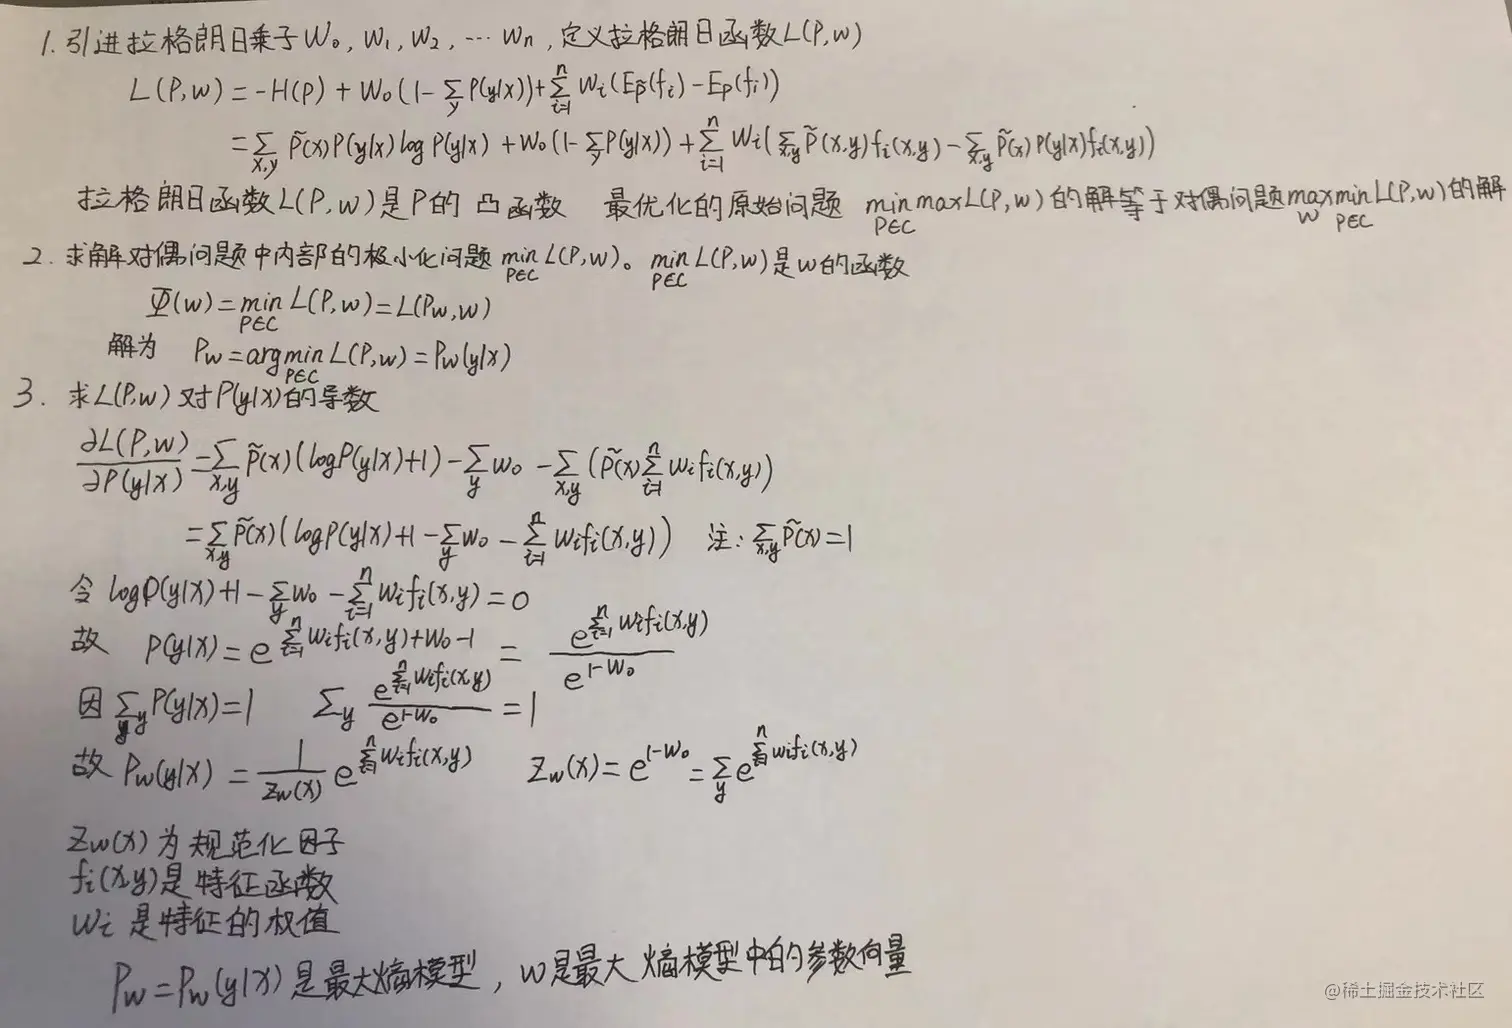 1. 引进拉格朗日乘子 W₀, W₁, W₂, ⋯ Wn, 定义拉格朗日函数L(P,w)
L(P,w) = -H(p) + W₀(1-∑_y P(y|x)) + ∑_{i=1}^n Wi(E_P̃(fi) - E_P(fi))
= ∑_{x,y} P̃(x)P(y|x) log P(y|x) + W₀(1-∑_y P(y|x)) + ∑_{i=1}^n Wi(∑_{x,y} P̃(x,y)fi(x,y) - ∑_{x,y} P̃(x)P(y|x)fi(x,y))
拉格朗日函数L(P,w)是P的 凸函数 最优化的原始问题 min_{P∈C} max L(P,w)的解等于对偶问题 max_W min_{P∈C} L(P,w)的解
2. 求解对偶问题中内部的极小化问题 min_{P∈C} L(P,w)。 min_{P∈C} L(P,w)是w的函数
Ψ(w) = min_{P∈C} L(P,w) = L(Pw,w)
解为 Pw = arg min_{P∈C} L(P,w) = Pw(y|x)
3. 求L(P,w)对P(y|x)的导数
∂L(P,w)/∂P(y|x) = ∑_{x,y} P̃(x)(logP(y|x)+1) - ∑_y w₀ - ∑_{x,y} (P̃(x)∑_{i=1}^n wifi(x,y))
= ∑_{x,y} P̃(x)(logP(y|x)+1 - ∑_y w₀ - ∑_{i=1}^n wifi(x,y)) 注: ∑_{x,y} P̃(x)=1
令 logP(y|x)+1 - ∑_y w₀ - ∑_{i=1}^n wifi(x,y) = 0
故 P(y|x) = e^{∑_{i=1}^n wifi(x,y)+w₀-1} = e^{∑_{i=1}^n wifi(x,y)} / e^{1-w₀}
因 ∑_y P(y|x)=1 ∑_y e^{∑_{i=1}^n wifi(x,y)} / e^{1-w₀} = 1
故 Pw(y|x) = 1/Zw(x) e^{∑_{i=1}^n wifi(x,y)} Zw(x) = e^{1-w₀} = ∑_y e^{∑_{i=1}^n wifi(x,y)}
Zw(x)为规范化因子
fi(x,y)是特征函数
wi是特征的权值
Pw=Pw(y|x)是最大熵模型, w是最大熵模型中的参数向量
@稀土掘金技术社区